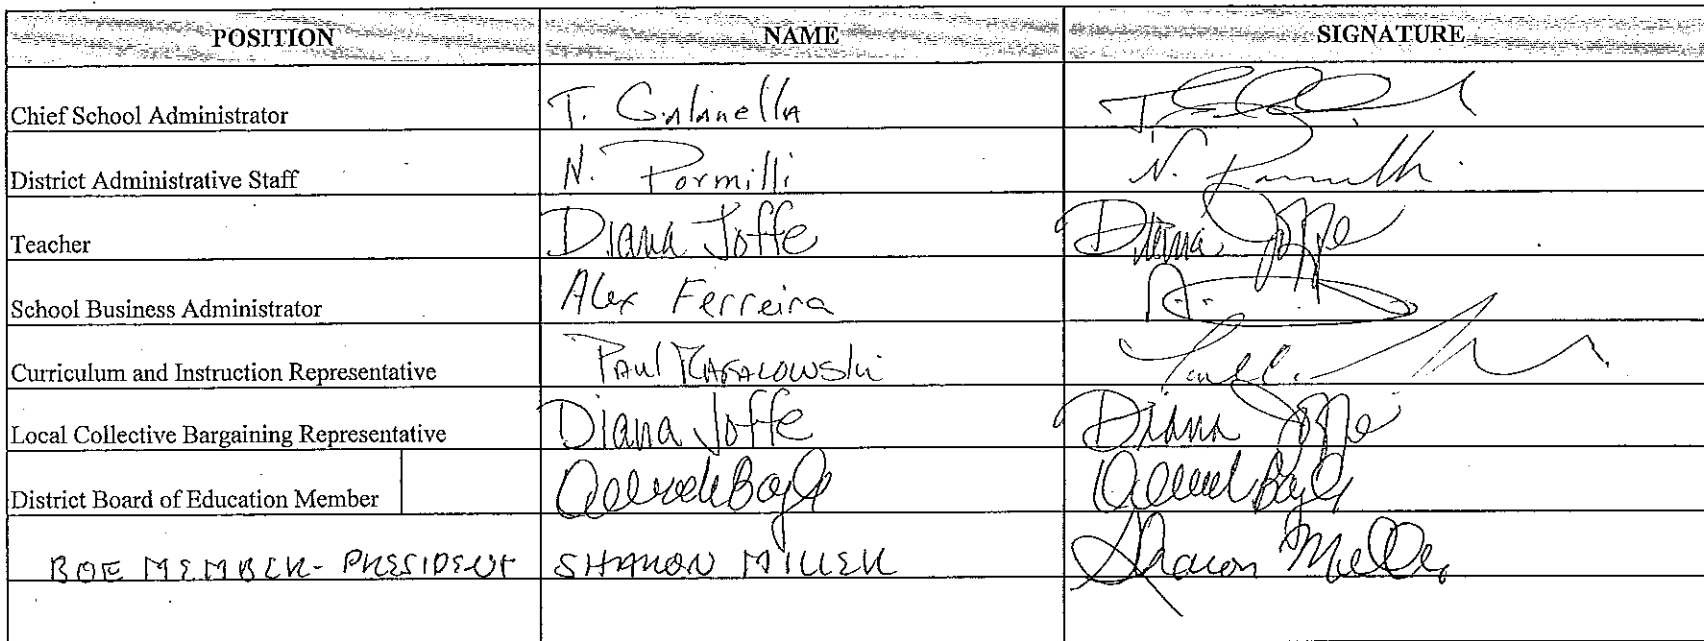 POSITION NAME SIGNATURE
Chief School Administrator T. Galinella
District Administrative Staff N. Pormilli N.
Teacher Diana Joffe Diana Joffe
School Business Administrator Alex Ferreira A.
Curriculum and Instruction Representative Paul
Local Collective Bargaining Representative Diana Joffe Diana Joffe
District Board of Education Member Boyle Boyle
BOE MEMBER- PRESIDENT SHARON MILLER Sharon Miller